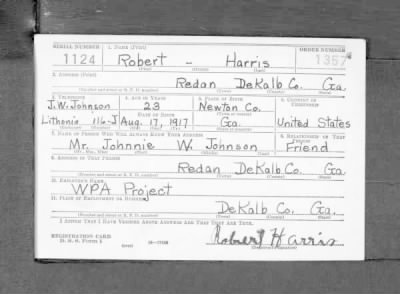 SERIAL NUMBER 1. NAME (Print) ORDER NUMBER
1124 Robert - Harris 1357
(First) (Middle) (Last)
2. ADDRESS (Print)
Redan DeKalb Co. Ga.
(Number and street or R. F. D. number) (Town) (County) (State)
3. TELEPHONE 4. AGE IN YEARS 5. PLACE OF BIRTH 6. COUNTRY OF CITIZENSHIP
J.W. Johnson 23 Newton Co.
DATE OF BIRTH
Lithonia 114-J Aug. 17, 1917 Ga. United States
7. NAME OF PERSON WHO WILL ALWAYS KNOW YOUR ADDRESS 8. RELATIONSHIP OF THAT PERSON
Mr. Johnnie W. Johnson Friend
9. ADDRESS OF THAT PERSON
Redan DeKalb Co. Ga.
(Number and street or R. F. D. number) (Town) (County) (State)
10. EMPLOYER'S NAME
WPA Project
11. PLACE OF EMPLOYMENT OR BUSINESS
DeKalb Co. Ga.
(Number and street or R. F. D. number) (Town) (County) (State)
I AFFIRM THAT I HAVE VERIFIED ABOVE ANSWERS AND THAT THEY ARE TRUE.
REGISTRATION CARD
D. S. S. Form 1 (over) 16-17105 Robert Harris
(Registrant's signature)